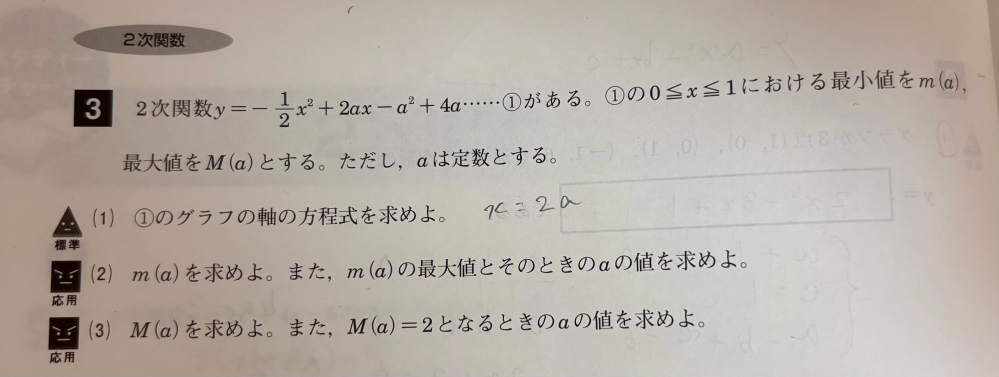 2次関数
3 2次関数y=－1/2x²+2ax－a²+4a……①がある。①の0≦x≦1における最小値をm(a),
最大値をM(a)とする。ただし，aは定数とする。
標準 (1) ①のグラフの軸の方程式を求めよ。 x=2a
応用 (2) m(a)を求めよ。また，m(a)の最大値とそのときのaの値を求めよ。
応用 (3) M(a)を求めよ。また，M(a)=2となるときのaの値を求めよ。